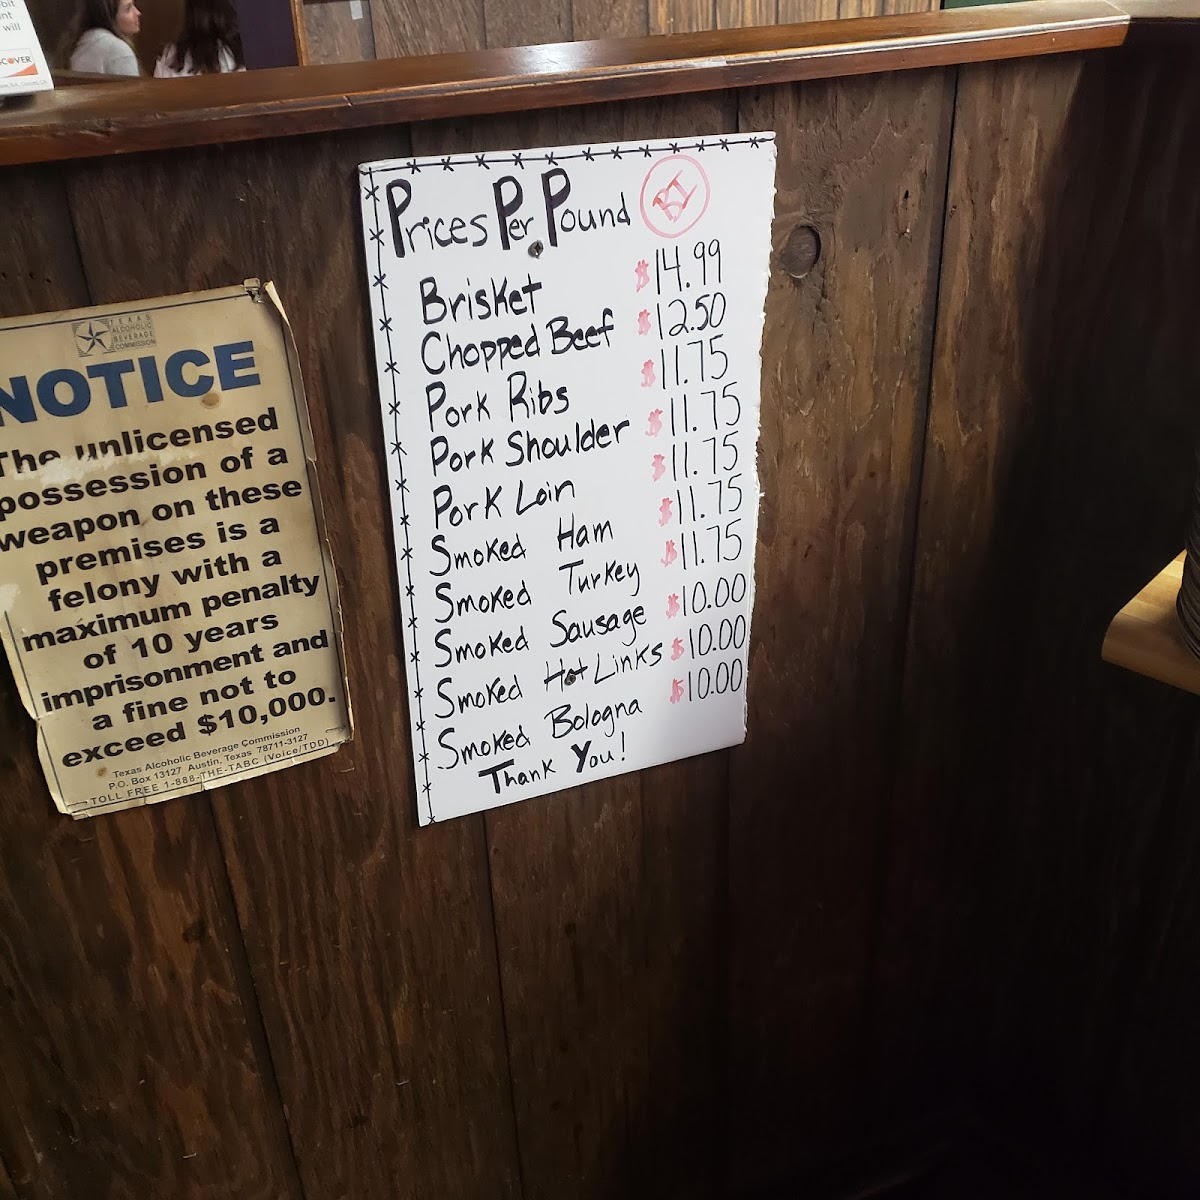 ibit
nt
will
COVER
TEXAS
ALCOHOLIC
BEVERAGE
COMMISSION
NOTICE
The unlicensed
possession of a
weapon on these
premises is a
felony with a
maximum penalty
of 10 years
imprisonment and
a fine not to
exceed $10,000.
Texas Alcoholic Beverage Commission
P.O. Box 13127 Austin, Texas 78711-3127
TOLL FREE 1-888-THE-TABC (Voice/TDD)
Prices Per Pound
Brisket $14.99
Chopped Beef $12.50
Pork Ribs $11.75
Pork Shoulder $11.75
Pork Loin $11.75
Smoked Ham $11.75
Smoked Turkey $11.75
Smoked Sausage $10.00
Smoked Hot Links $10.00
Smoked Bologna $10.00
Thank You!